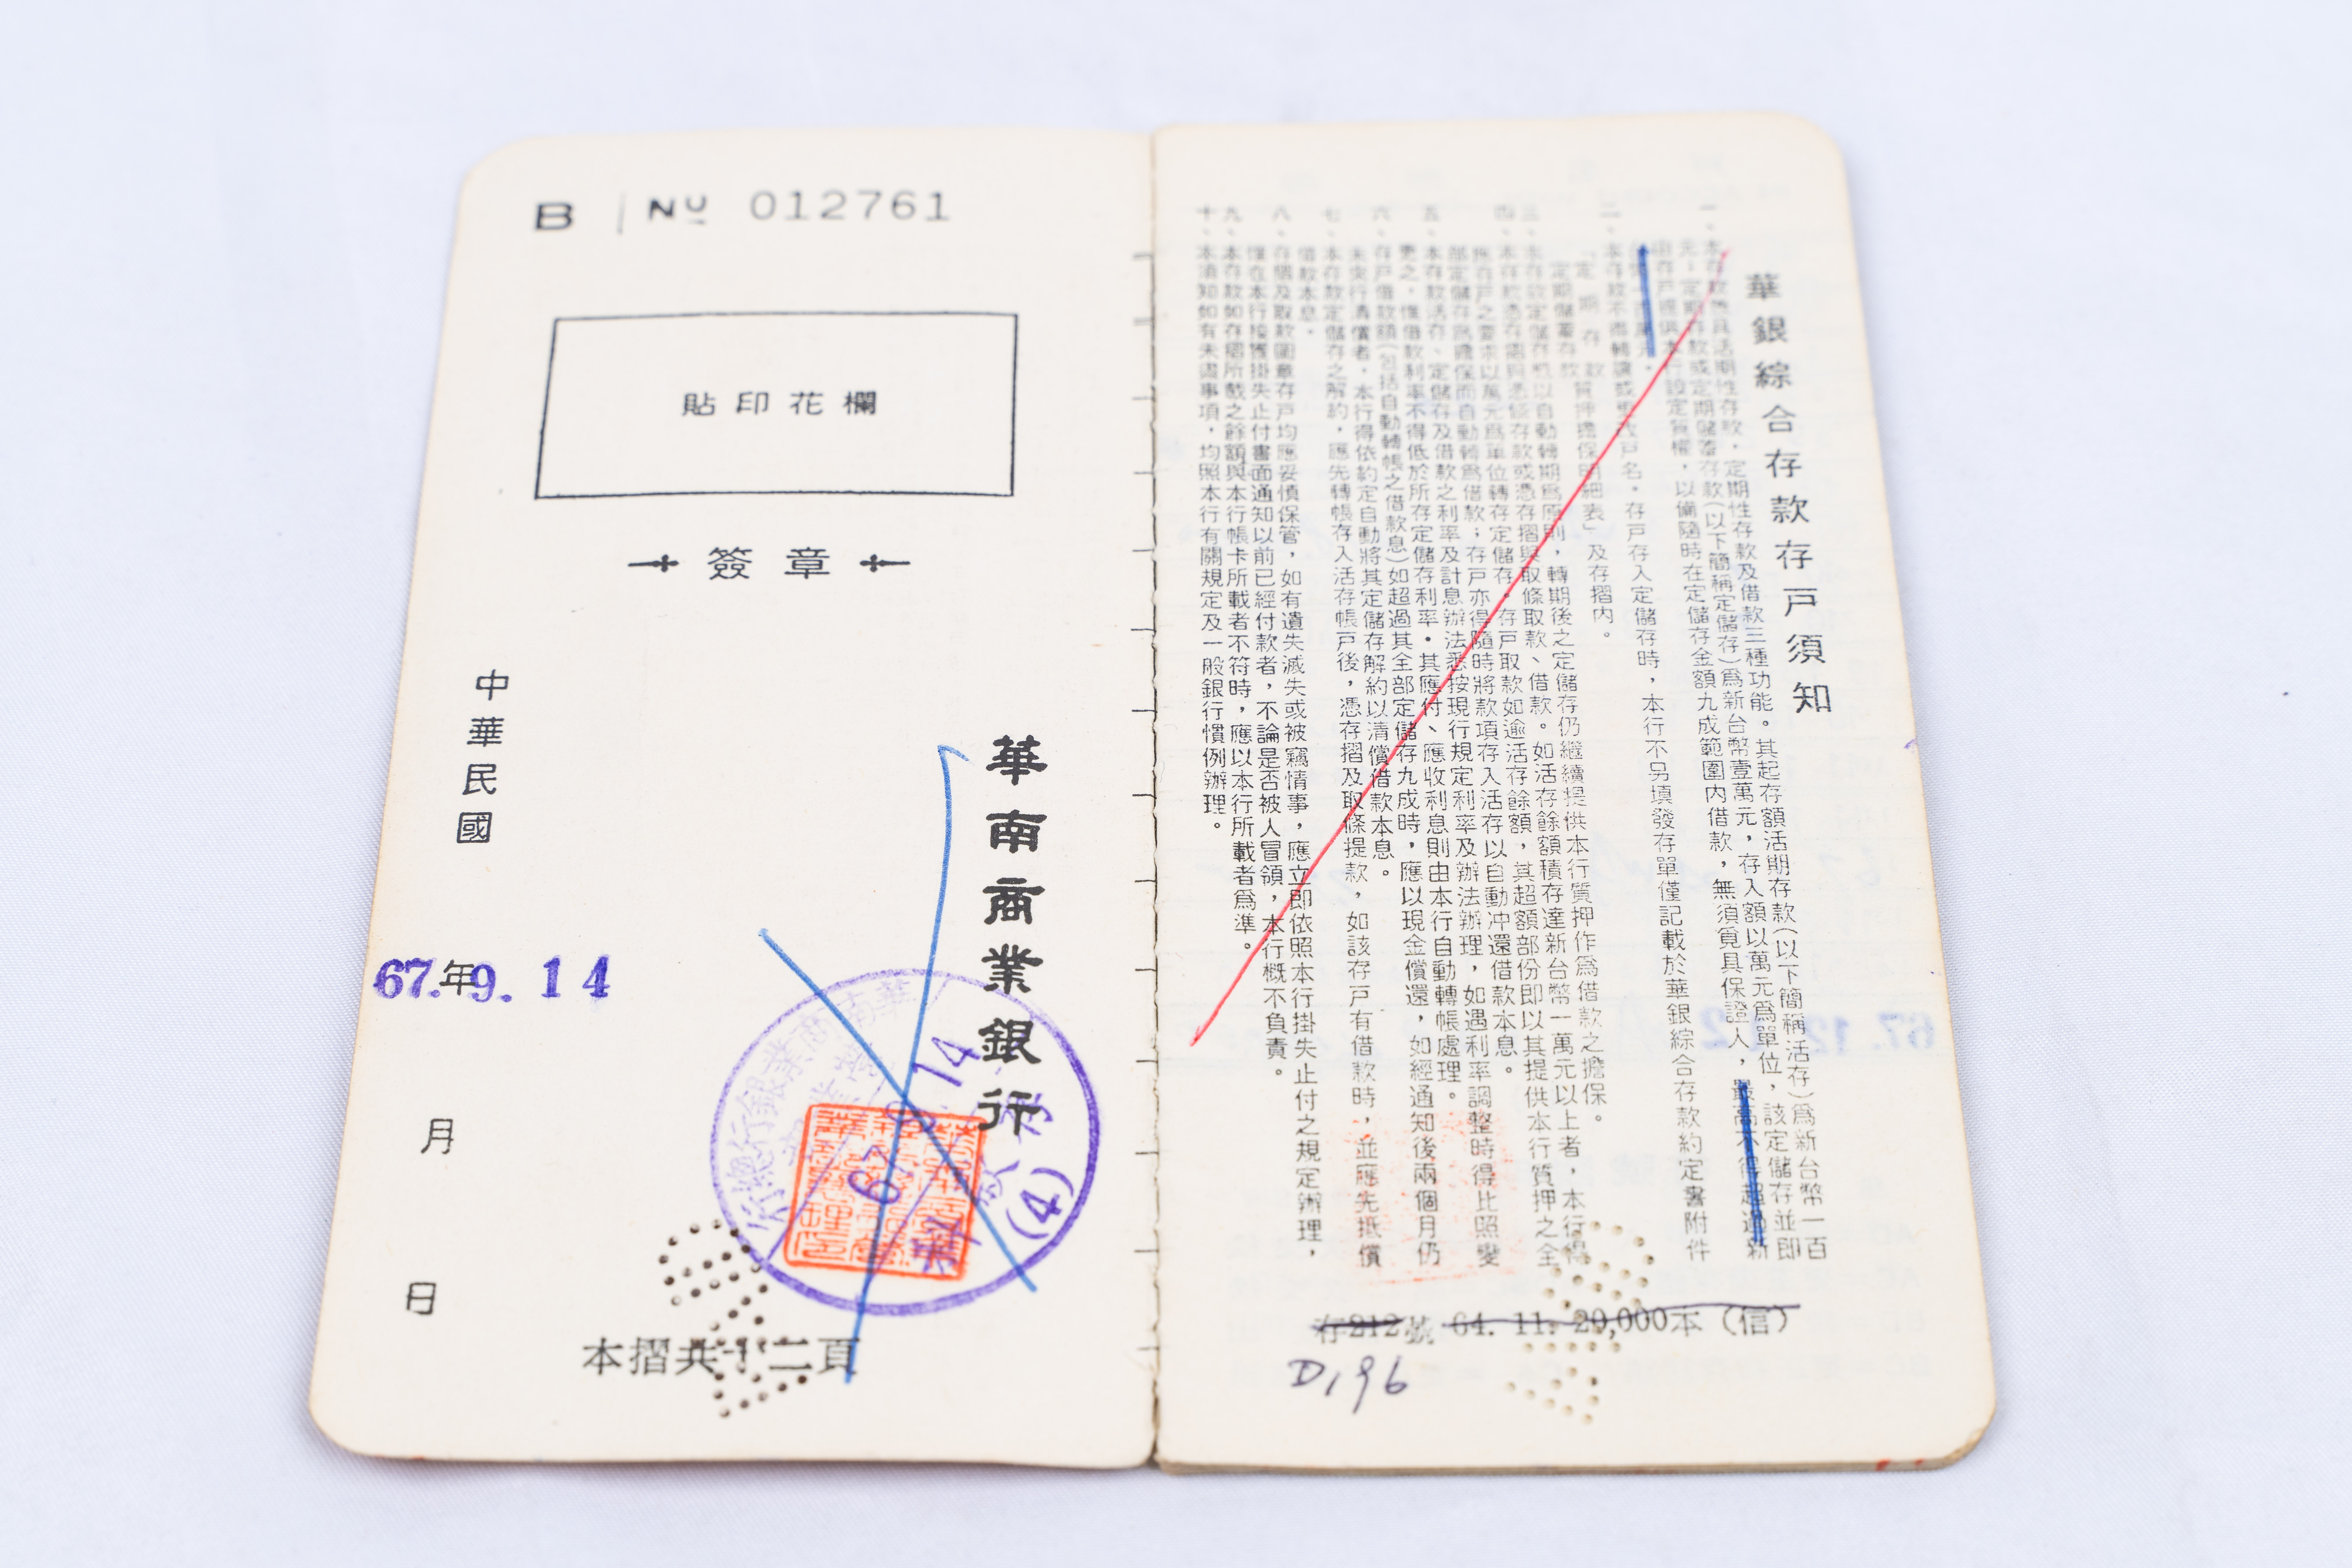 B NO 012761
貼印花欄
簽章
華南商業銀行
中華民國
67.年9.14
月
日
(4)
本摺共十二頁
華銀綜合存款存戶須知
一、本存款兼具活期性存款,定期性存款及借款三種功能。其起存額活期存款(以下簡稱活存)爲新台幣一百
元,定期存款或定期儲蓄存款(以下簡稱定儲存)爲新台幣壹萬元,存入額以萬元爲單位,該定儲存並即
由存戶提供本行設定質權,以備隨時在定儲存金額九成範圍內借款,無須覓具保證人,最高不得超過新
台幣一百萬元。
二、本存款不得轉讓或更改戶名。存戶存入定儲存時,本行不另填發存單僅記載於華銀綜合存款約定書附件
「定期存款質押擔保明細表」及存摺內。
定期儲蓄存款
三、本存款定儲存概以自動轉期爲原則,轉期後之定儲存仍繼續提供本行質押作爲借款之擔保。
四、本存款憑存摺與憑條存款或憑存摺與取條取款、借款。如活存餘額積存達新台幣一萬元以上者,本行得
應存戶之要求以萬元爲單位轉存定儲存。存戶取款如逾活存餘額,其超額部份即以其提供本行質押之全
部定儲存爲擔保而自動轉爲借款;存戶亦得隨時將款項存入活存以自動冲還借款本息。
五、本存款活存、定儲存及借款之利率及計息辦法悉按現行規定利率及辦法辦理,如遇利率調整時得比照變
更之,惟借款利率不得低於所存定儲存利率。其應付、應收利息則由本行自動轉帳處理。
六、存戶借款額(包括自動轉帳之借款息)如超過其全部定儲存九成時,應以現金償還,如經通知後兩個月仍
未行清償者,本行得依約定自動將其定儲存解約以清償借款本息。
七、本存款定儲存之解約,應先轉帳存入活存帳戶後,憑存摺及取條提款,如該存戶有借款時,並應先抵償
借款本息。
八、存摺及取款圖章存戶均應妥慎保管,如有遺失滅失或被竊情事,應立即依照本行掛失止付之規定辦理,
惟在本行接獲掛失止付書面通知以前已經付款者,不論是否被人冒領,本行概不負責。
九、本存款如存摺所載之餘額與本行帳卡所載者不符時,應以本行所載者爲準。
十、本須知如有未盡事項,均照本行有關規定及一般銀行慣例辦理。
存212號 64. 11. 20,000本(信)
D196